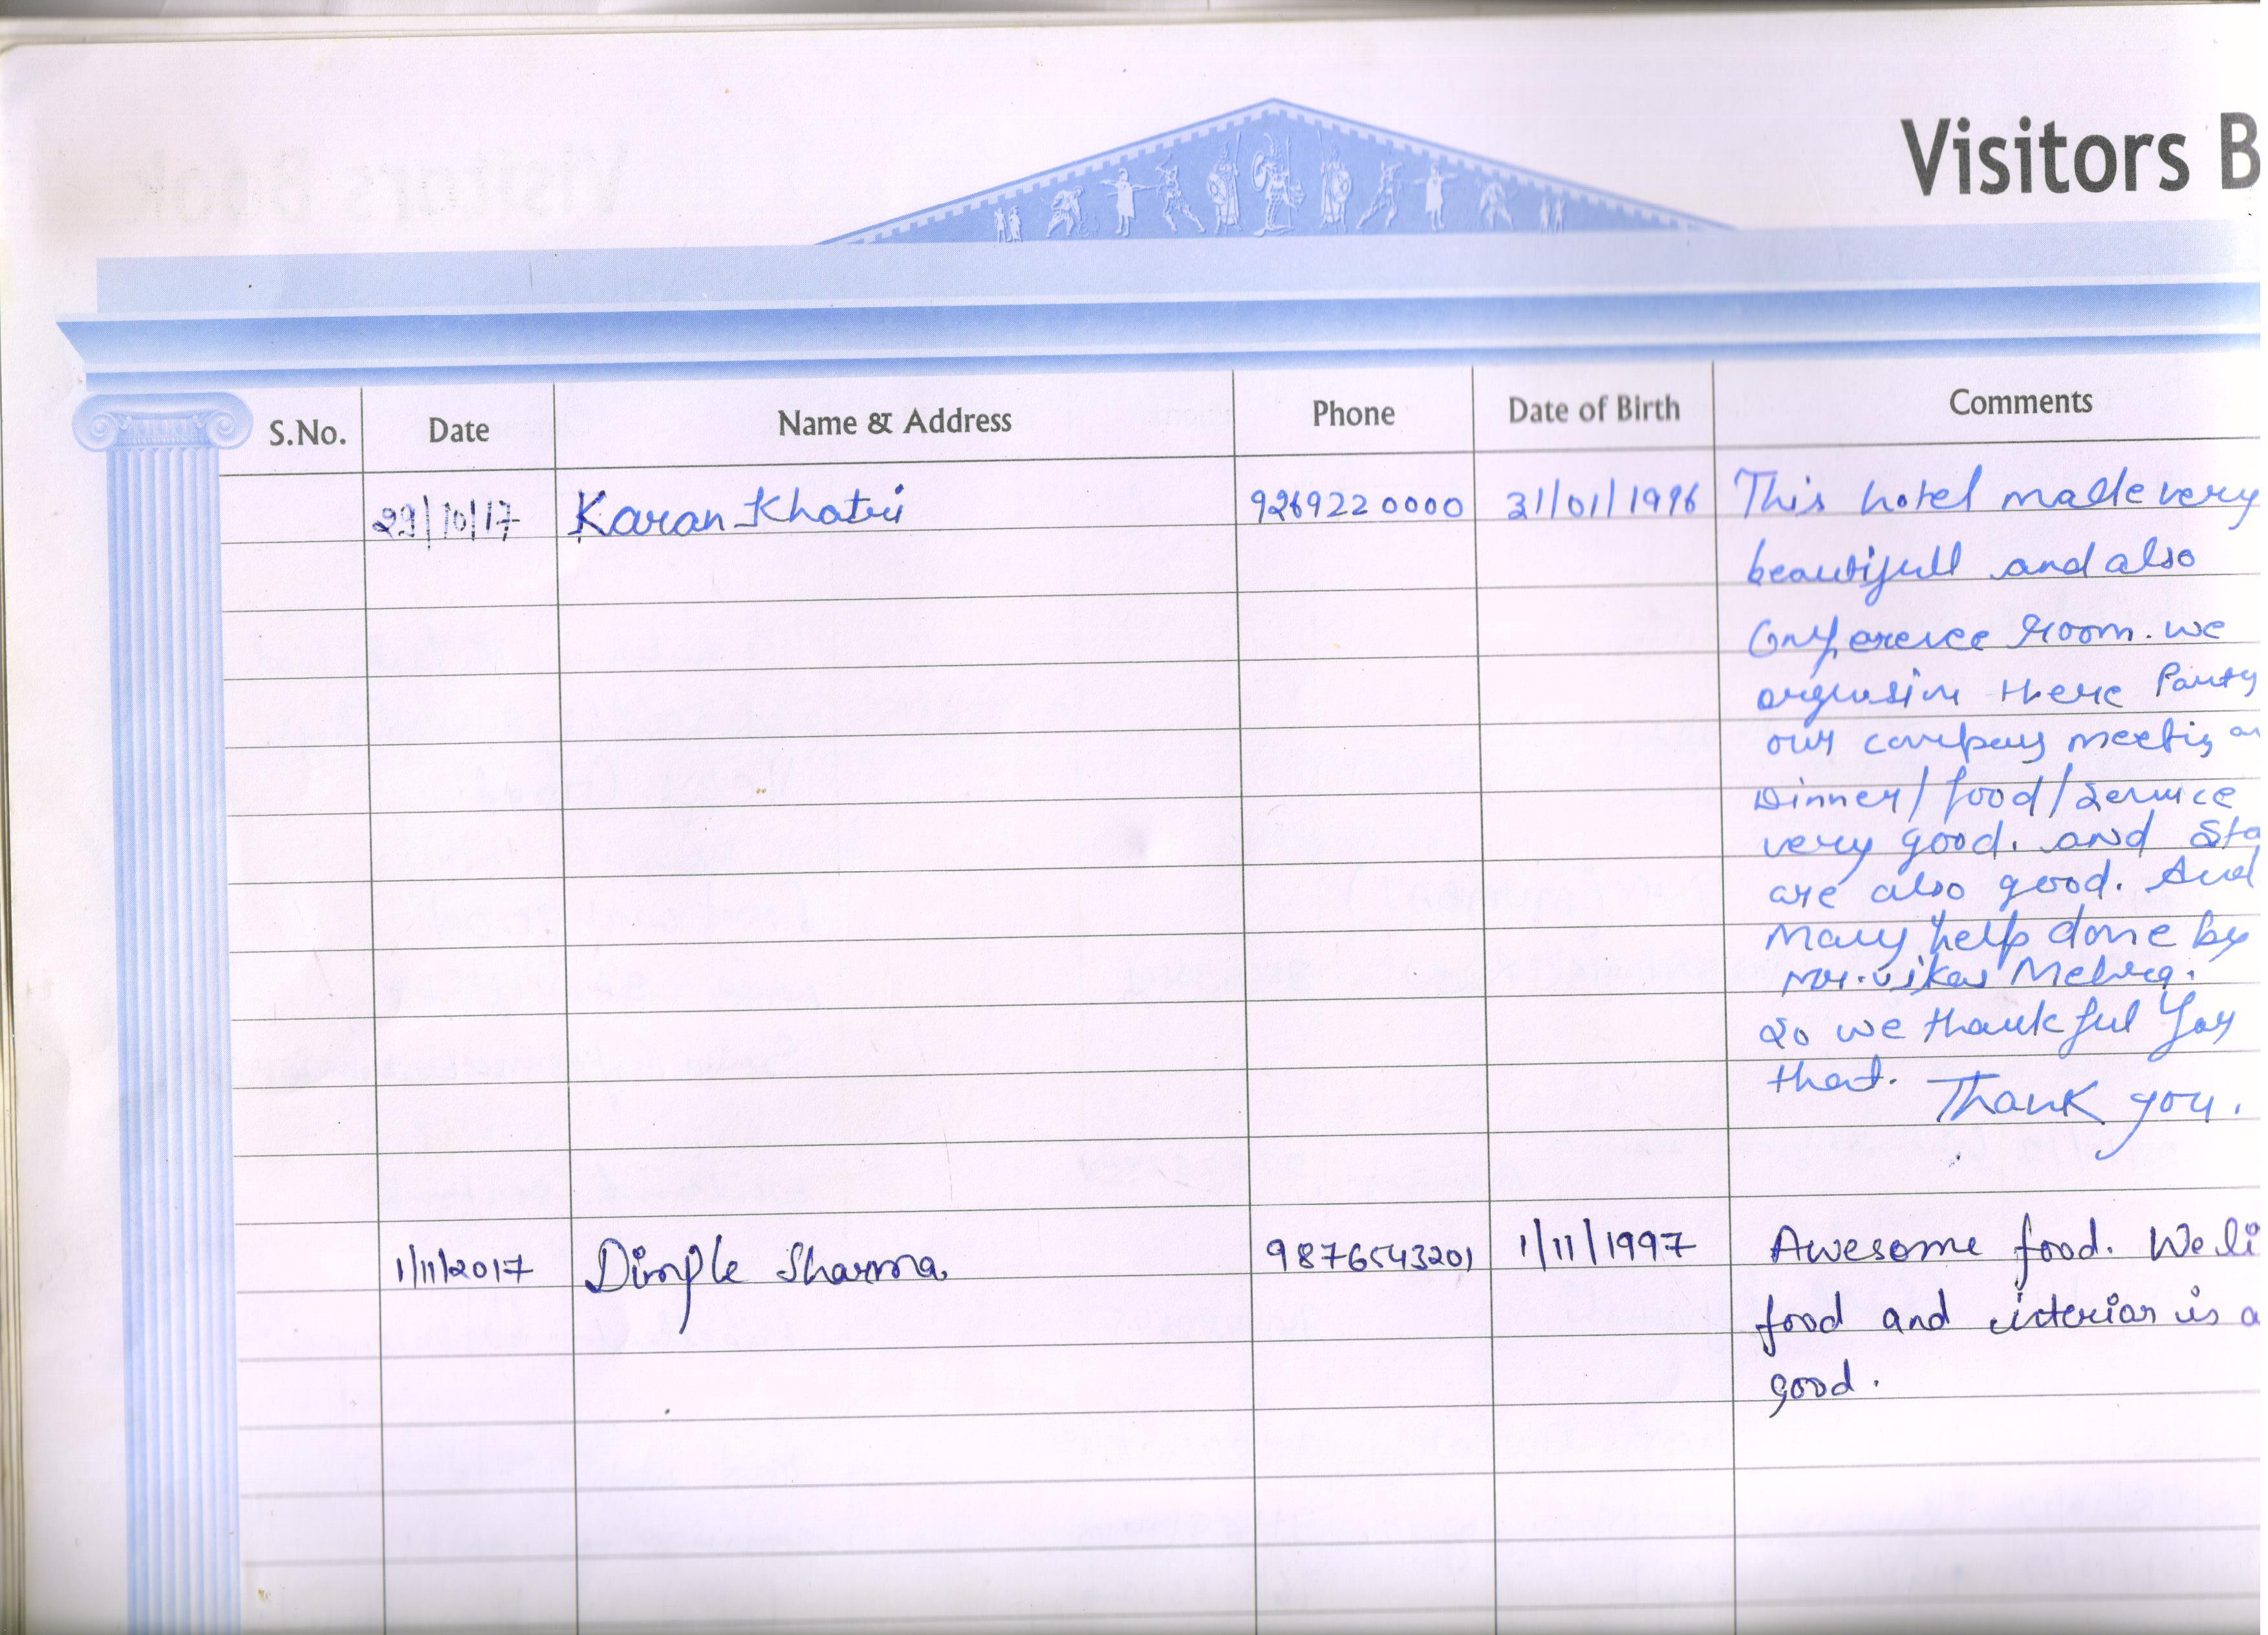 Visitors B
S.No. Date Name & Address Phone Date of Birth Comments
29/10/17 Karan Khatri 9269220000 31/01/1996 This hotel made very
beautifull and also
Conference room. we
there Party
our company meeting
Dinner/food/service
very good. and Sta
are also good. And
Many help done by
Mr. vikas Mehra.
So we thankful for
that. Thank you.
1/11/2017 Dimple Sharma. 9876543201 1/11/1997 Awesome food. We li
food and interior is a
good.